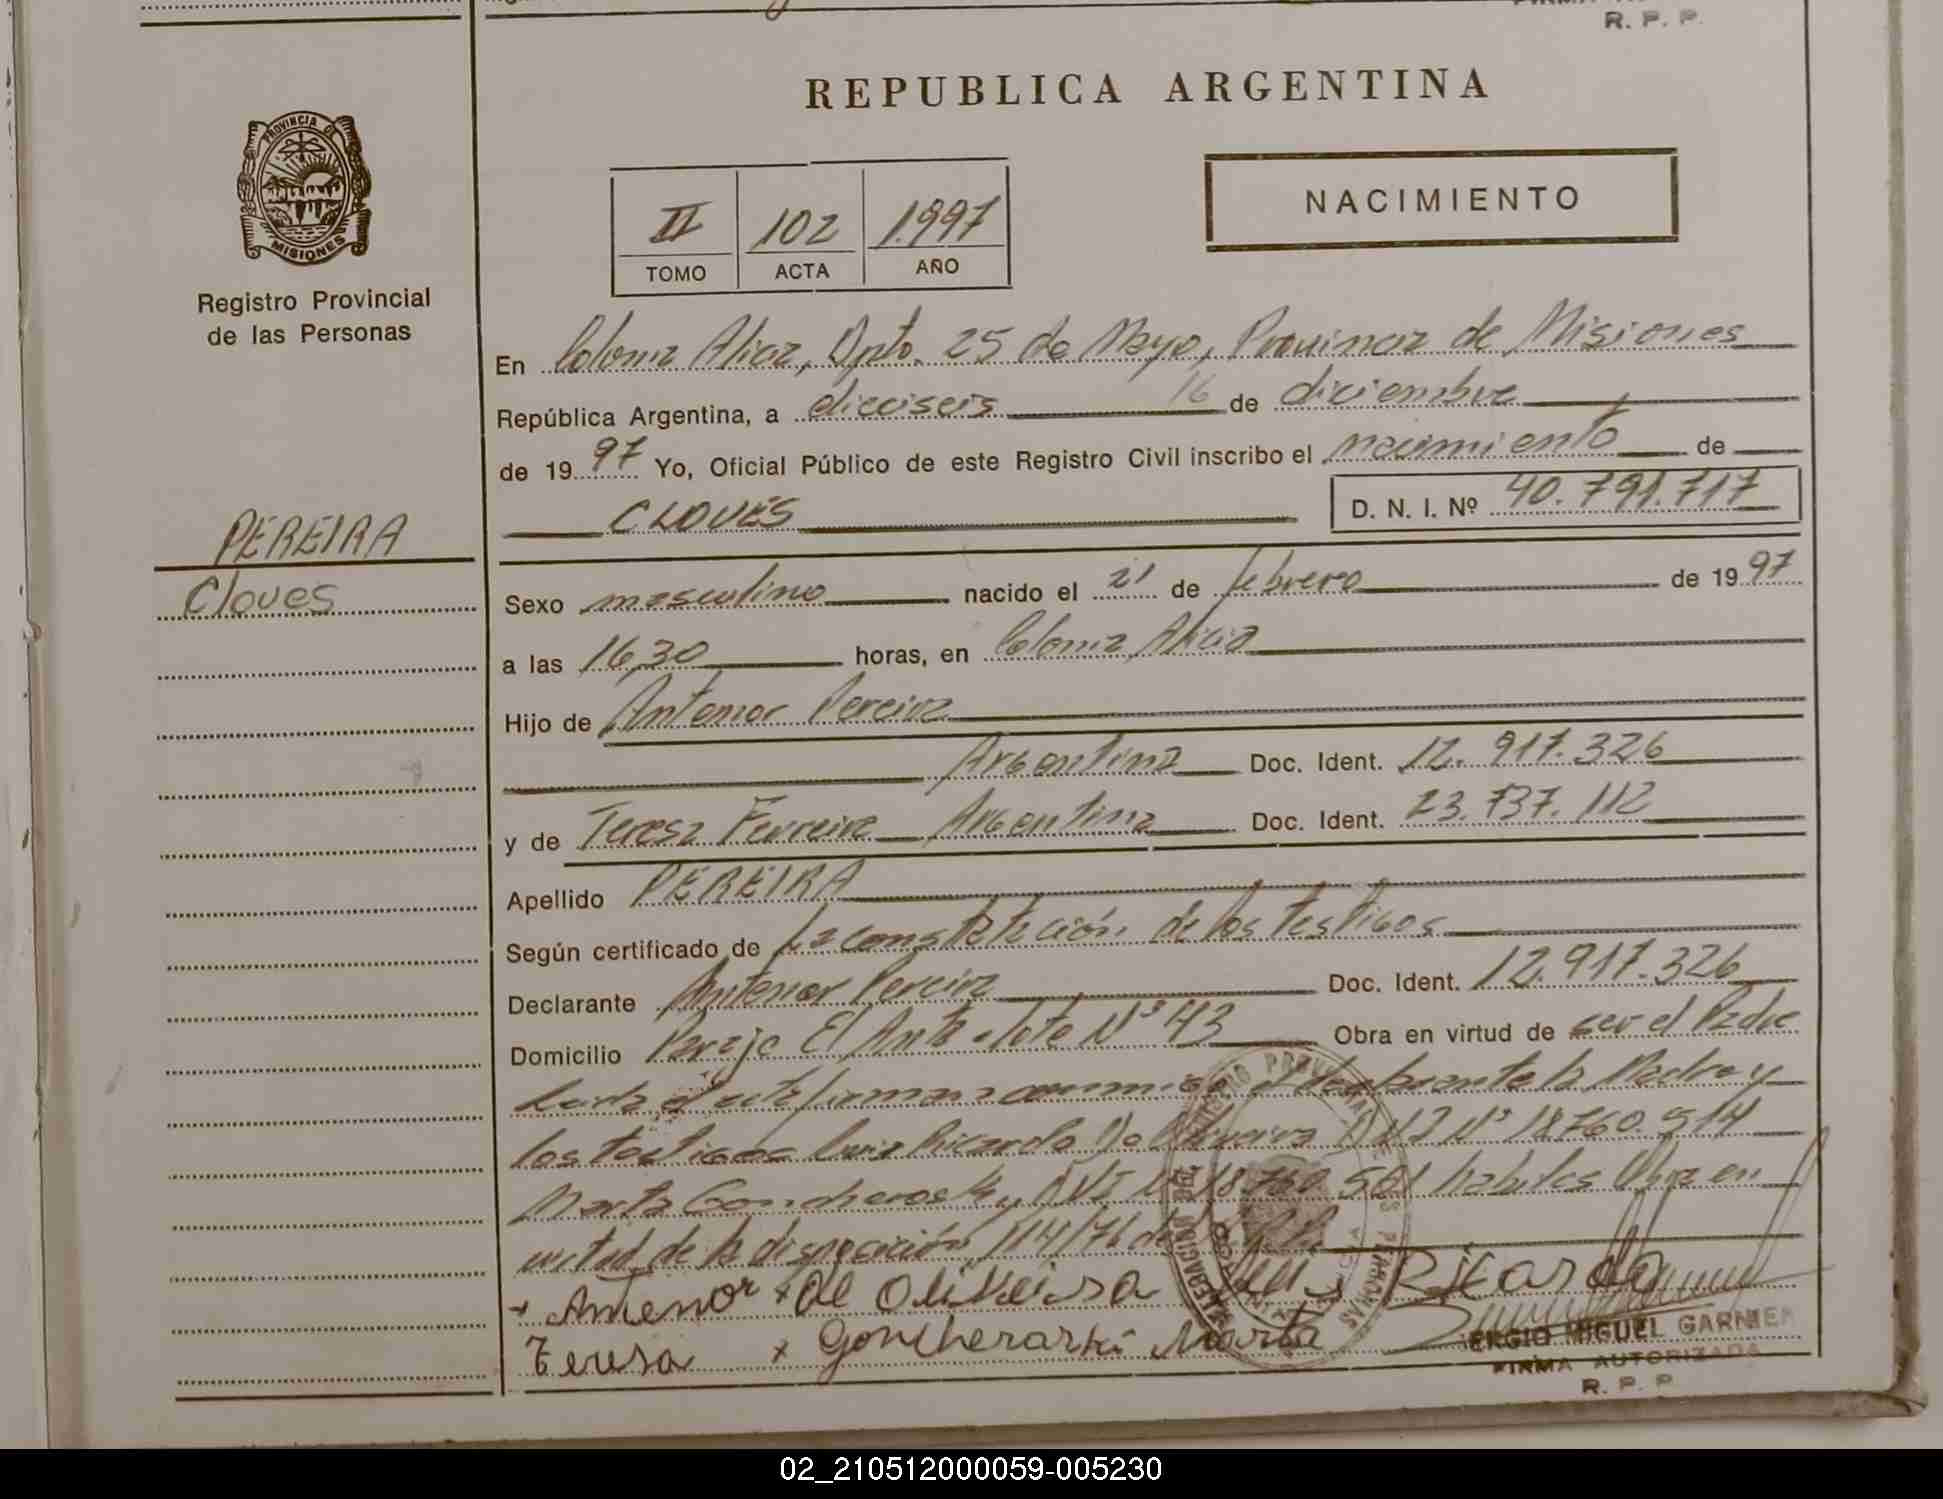 R. P. P.
REPUBLICA ARGENTINA
PROVINCIA DE
MISIONES
Registro Provincial
de las Personas
II 102 1.997
TOMO ACTA AÑO
NACIMIENTO
En Colonia Alicia, Dpto. 25 de Mayo, Provincia de Misiones
República Argentina, a dieciseis 16 de diciembre
de 19 97 Yo, Oficial Público de este Registro Civil inscribo el nacimiento de
CLOVES D. N. I. Nº 40.791.717
PEREIRA
Cloves
Sexo masculino nacido el 21 de febrero de 19 97
a las 16,30 horas, en Colonia Alicia
Hijo de Antenor Pereira
Argentina Doc. Ident. 12.917.326
y de Teresa Ferreira Argentina Doc. Ident. 23.737.112
Apellido PEREIRA
Según certificado de la constatación de los testigos
Declarante Antenor Pereira Doc. Ident. 12.917.326
Domicilio Paraje El Anta Lote Nº 43 Obra en virtud de ser el Padre
Leida el acta firman conmigo el declarante la Madre y
los testigos Luis Ricardo De Oliveira DNI Nº 18.760.514
Marta Goncheroski DNI Nº 18.760.561 habiles Obra en
virtud de la disposición 114/76 del
+ Antenor + de oliveira Luis Ricardo
Teresa x Goncherarki Marta
SERGIO MIGUEL GARNIER
FIRMA AUTORIZADA
R. P. P.
02_210512000059-005230